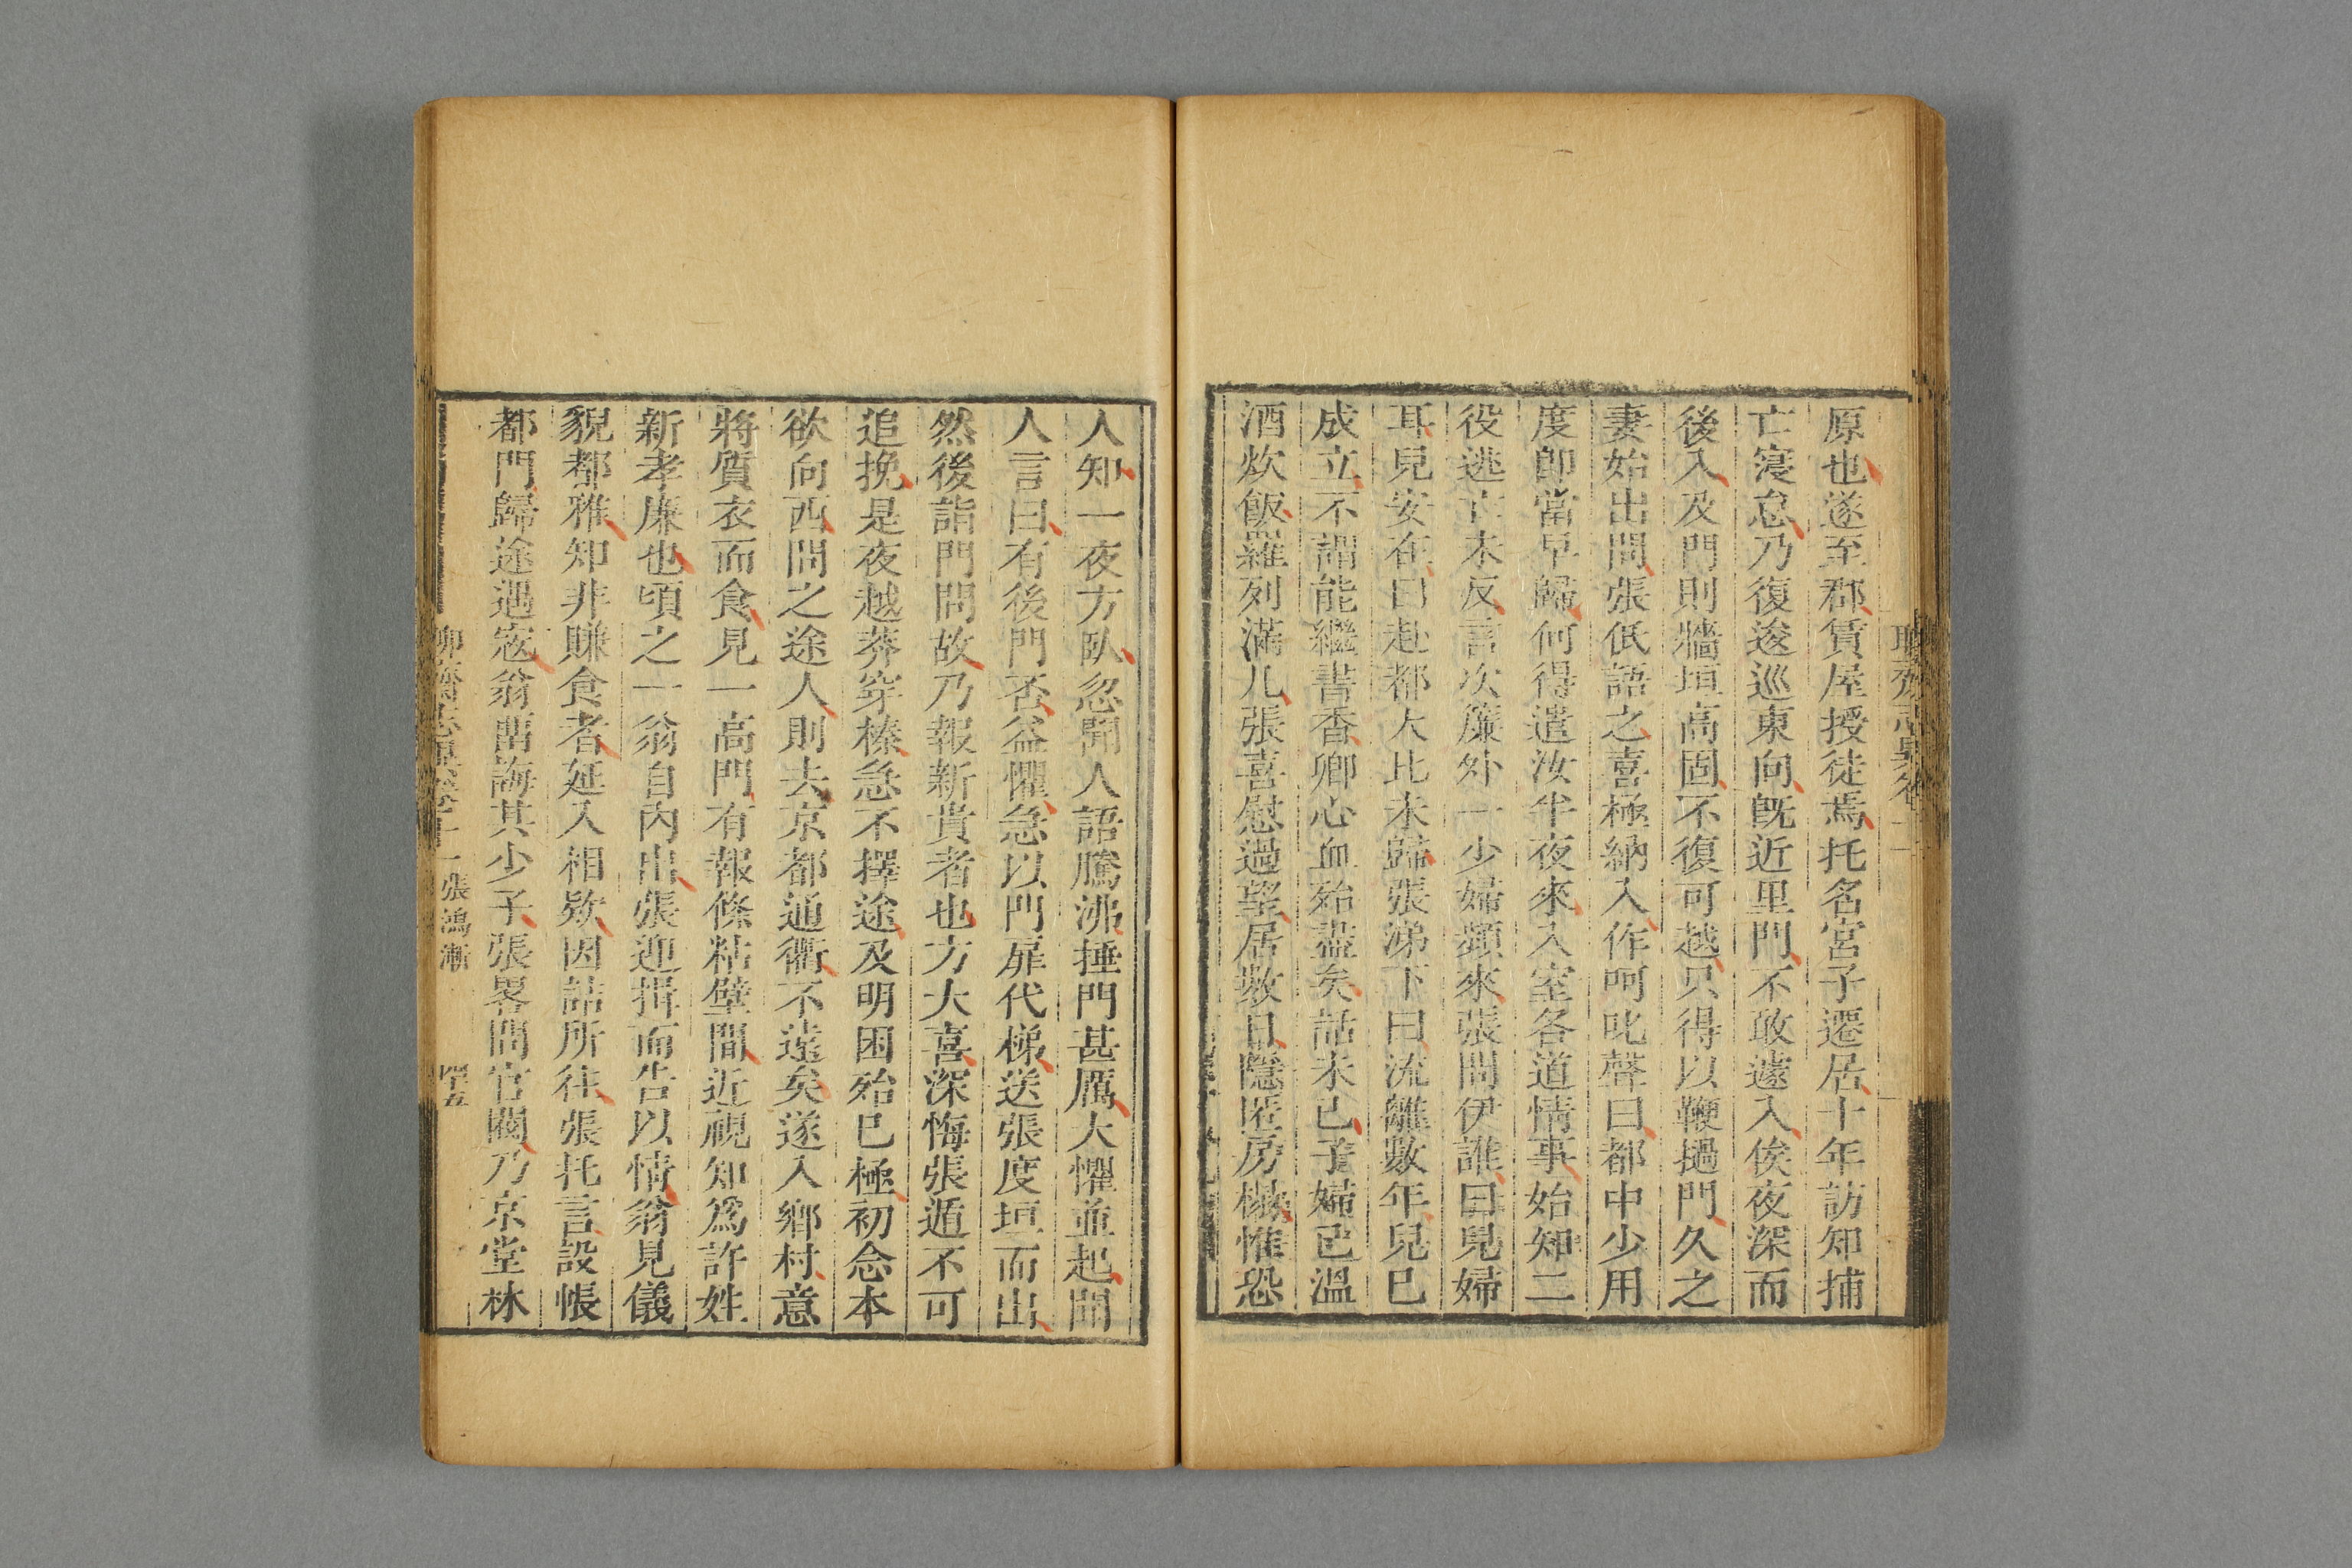 原也遂至郡賃屋授徒焉托名宮子遷居十年訪知捕
亡寖怠乃復逡巡東向既近里門不敢遽入俟夜深而
後入及門則牆垣高固不復可越只得以鞭撾門久之
妻始出問張低語之喜極納入作呵叱聲曰都中少用
度即當早歸何得遣汝半夜來入室各道情事始知二
役逃亡未反言次簾外一少婦頻來張問伊誰曰兒婦
耳兒安在曰赴都大比未歸張涕下曰流離數年兒已
成立不謂能繼書香卿心血殆盡矣話未已子婦已溫
酒炊飯羅列滿几張喜慰過望居數日隱匿房榻惟恐
人知一夜方臥忽聞人語騰沸捶門甚厲大懼並起聞
人言曰有後門否益懼急以門扉代梯送張度垣而出
然後詣門問故乃報新貴者也方大喜深悔張遁不可
追挽是夜越莽穿榛急不擇途及明困殆已極初念本
欲向西問之途人則去京都通衢不遠矣遂入鄉村意
將質衣而食見一高門有報條粘壁間近視知爲許姓
新孝廉也頃之一翁自內出張迎揖而告以情翁見儀
貌都雅知非賺食者延入相欵因詰所往張托言設帳
都門歸途遇寇翁留誨其少子張畧問官閥乃京堂林
張鴻漸
四十五